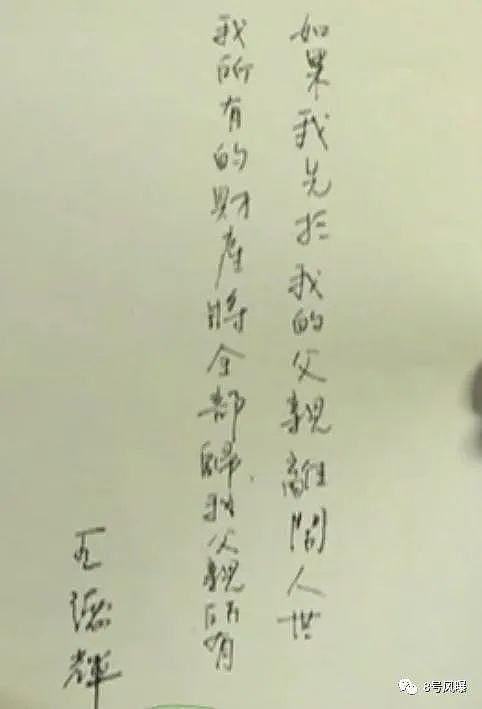 如果我先於我的父親離開人世
我所有的財產將全部歸我父親所有
王德輝
8号风曝